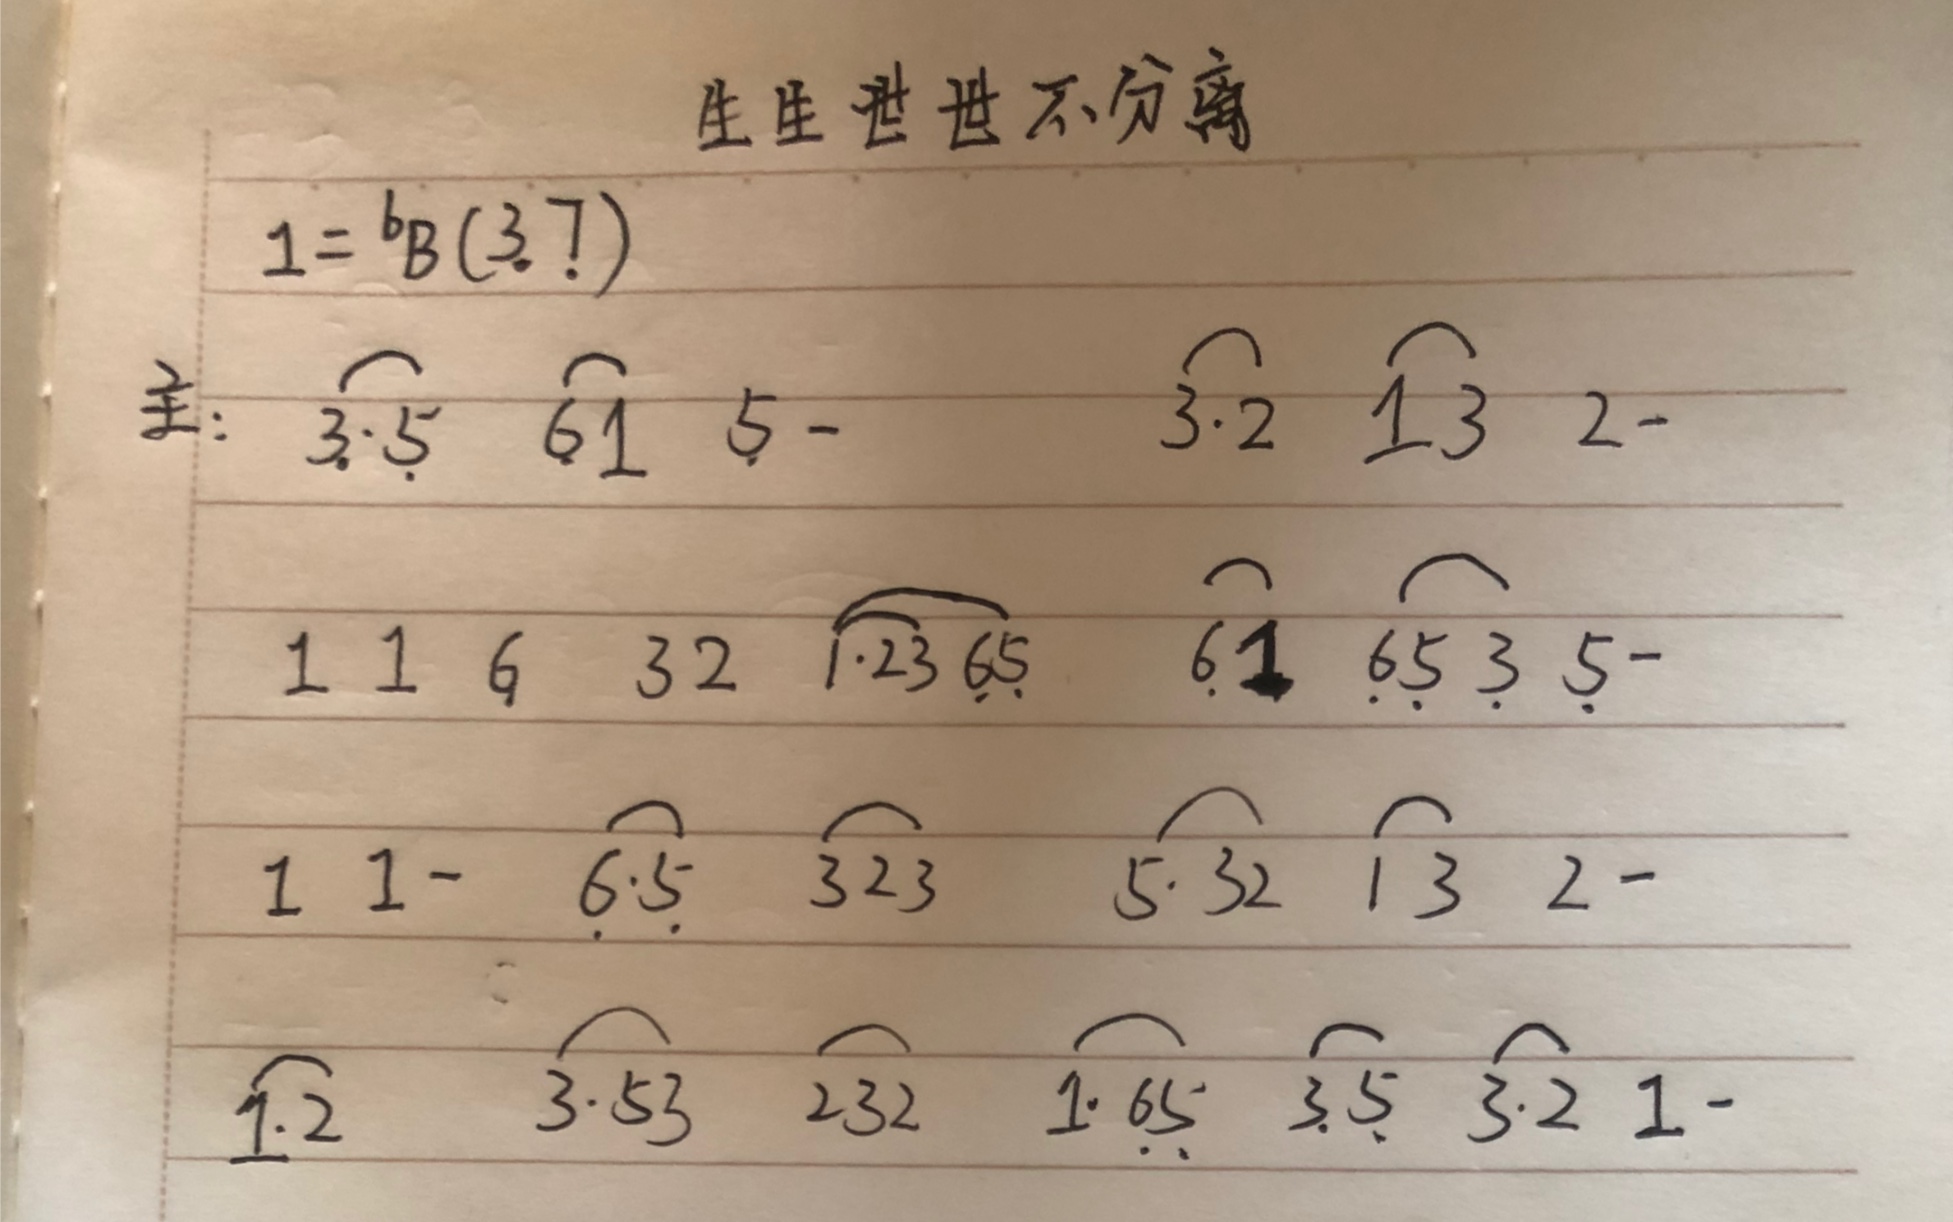 生生世世不分离
1=ᵇB(3̣ 7̣)
主: 3̣·5̣ 6̣1 5̣- 3·2 13 2-
1 1 6̣ 32 1·23 6̣5̣ 6̣1 6̣5̣ 3̣ 5̣-
1 1- 6̣·5̣ 323 5·32 13 2-
1·2 3·53 232 1·6̣5̣ 3̣5̣ 3·2 1-